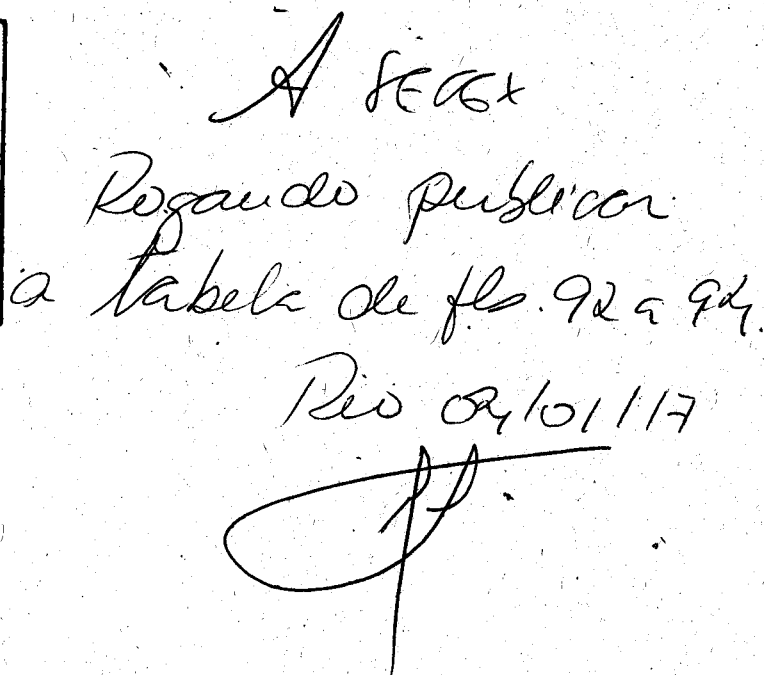 A SECEX
Rogando publicar
a tabela de fls. 92 a 94.
Rio 04/01/17